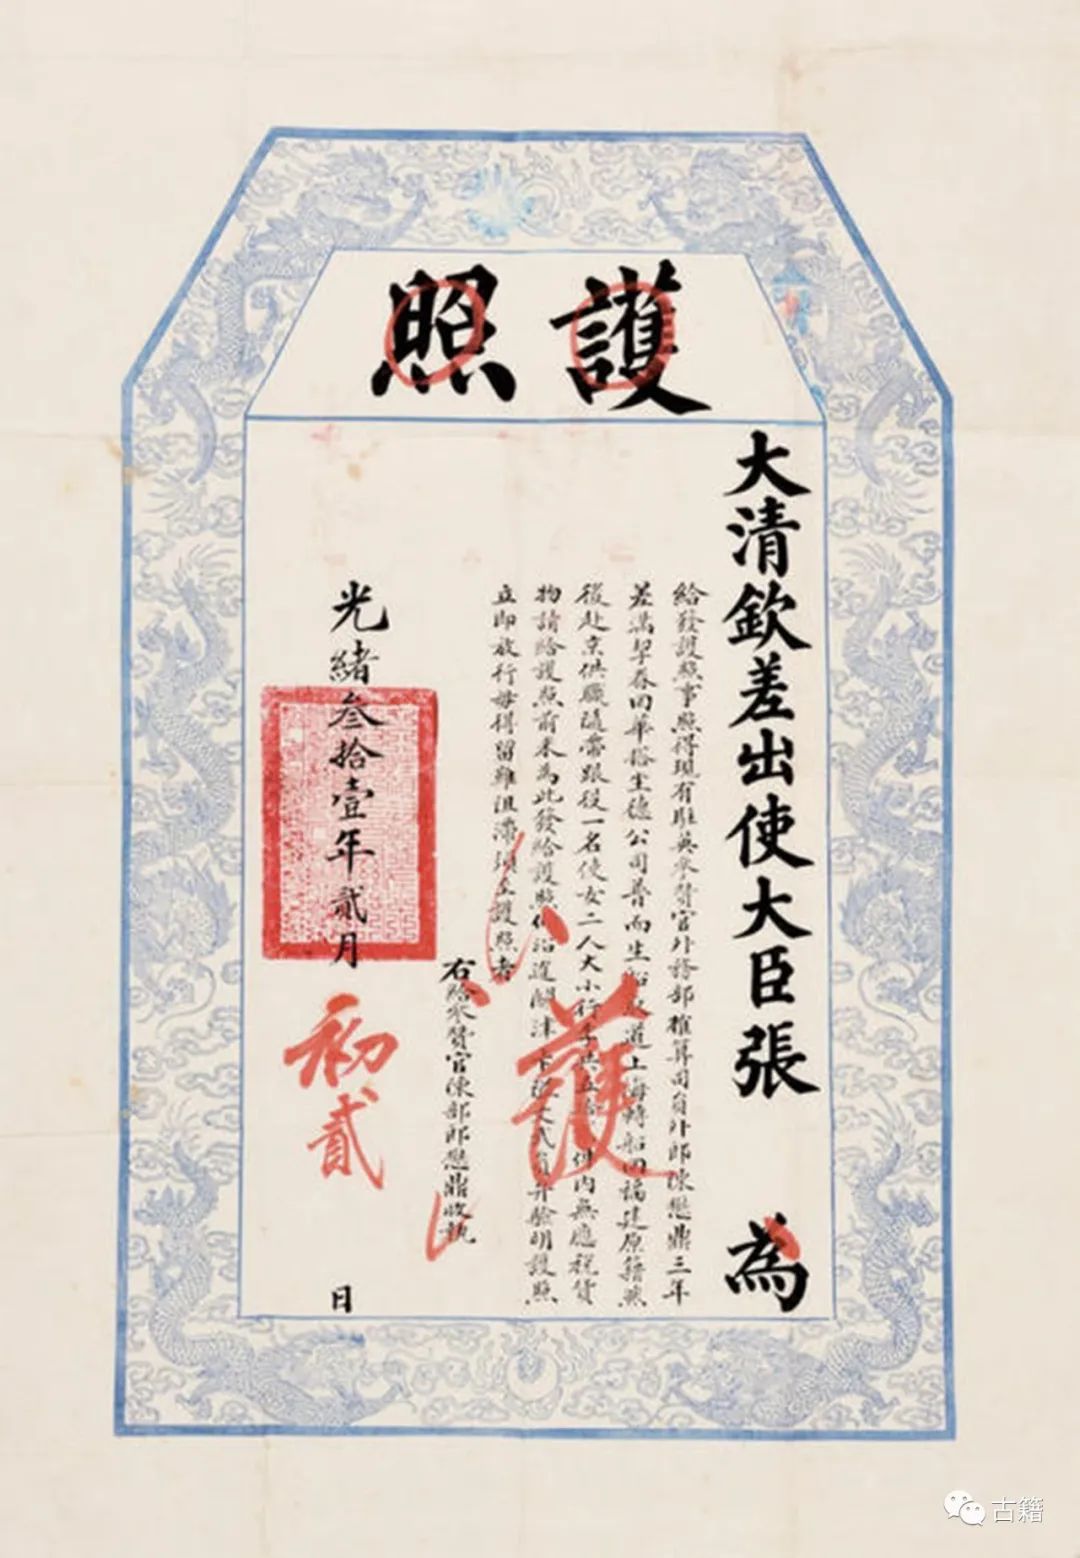 護照
大清欽差出使大臣張 為
給發護照事照得現有駐英參贊官外務部榷算司員外郎陳懋鼎三年
差滿挈眷回華搭坐德公司普而生船取道上海轉船回福建原籍然
後赴京供職隨帶跟役一名使女二人大小行李共五拾 件內無應稅貨
物請給護照前來為此發給護照仰沿途關津卡 文武員弁驗明護照
立即放行毋得留難阻滯須至護照者
右給參贊官陳部郎懋鼎收執
光緒叁拾壹年貳月初貳日
護
古籍